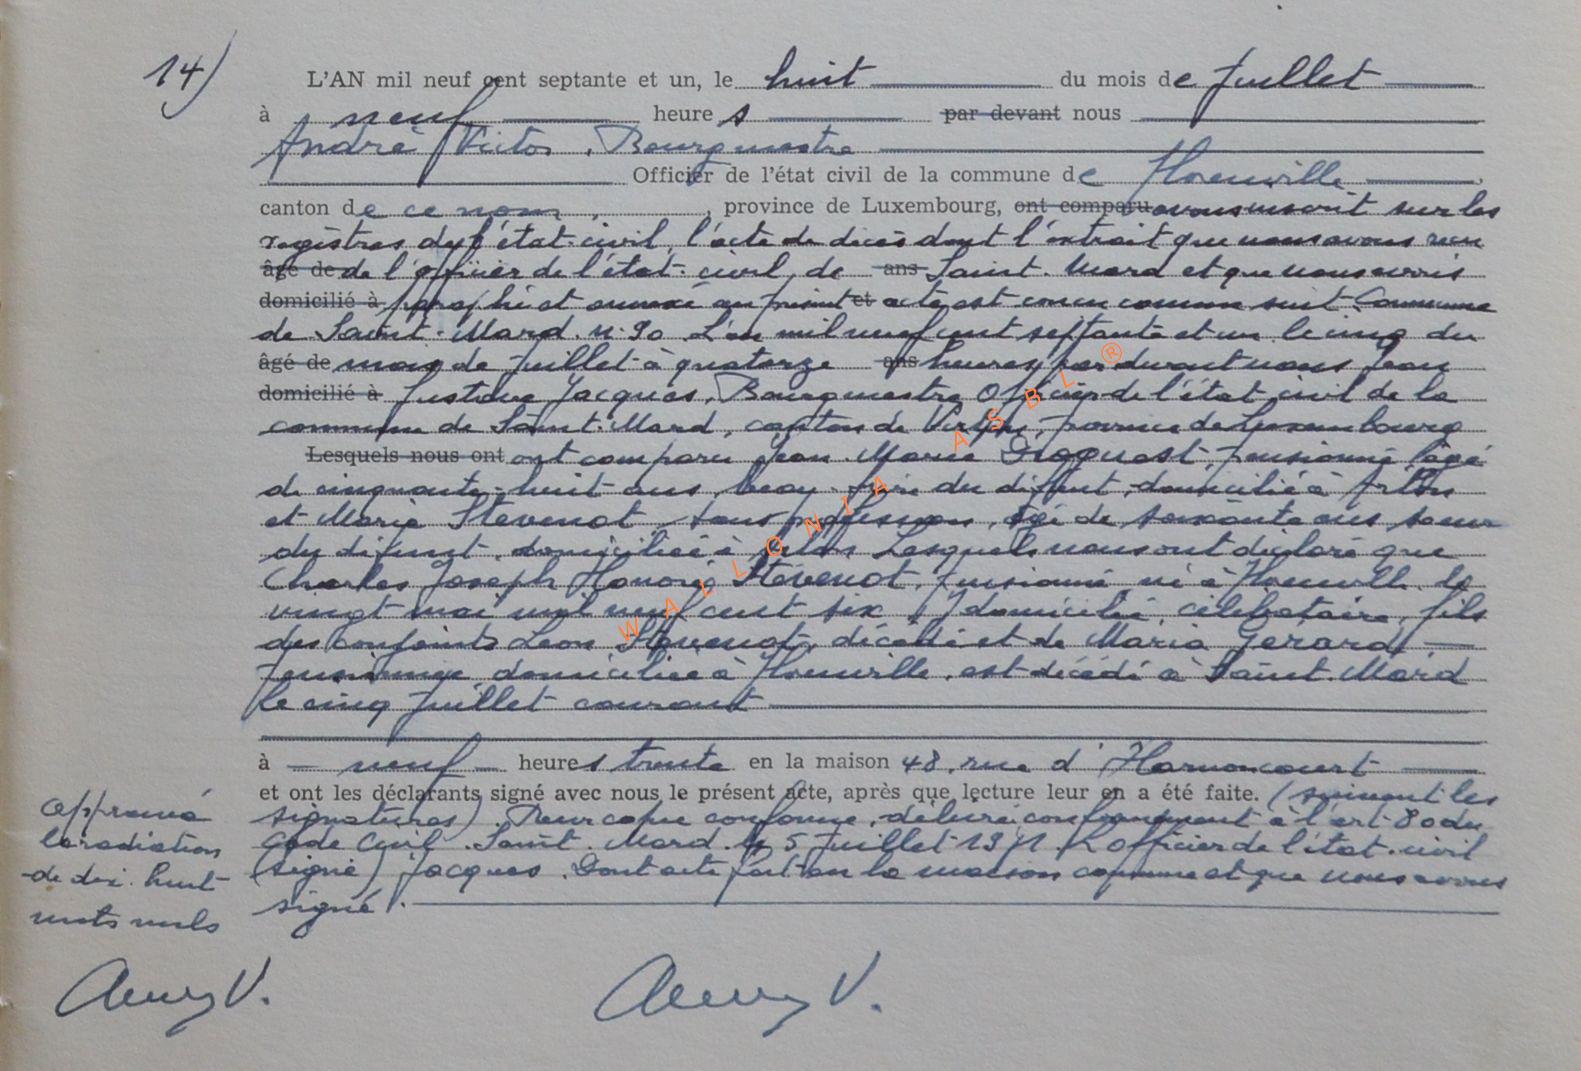 14)
L'AN mil neuf cent septante et un, le huit du mois de Juillet
à neuf heures par devant nous
André Victor, Bourgmestre
Officier de l'état civil de la commune de Florenville
canton de ce nom, province de Luxembourg, ont comparu avons inscrit sur les
registres de l'état-civil, l'acte de décès dont l'extrait que nous avons reçu
âgé de de l'officier de l'état-civil de ans Saint-Mard et que nous avons
domicilié à paraphé et annexé au présent et acte est conçu comme suit: Commune
de Saint-Mard. n° 90 L'an mil neuf cent septante et un le cinq du
âgé de mois de Juillet à quatorze ans heures par devant nous Jean
domicilié à Justine Jacques, Bourgmestre Officier de l'état civil de la
commune de Saint-Mard, canton de Virton, province de Luxembourg
Lesquels nous ont ont comparu Jean-Marie pensionné, âgé
de cinquante-huit ans, beau-frère du défunt, domicilié à Arlon
et Maria Stevenot, sans profession, âgé de soixante ans soeur
du défunt, domiciliée à Arlon Lesquels nous ont déclaré que
Charles Joseph Honoré Stevenot, pensionné né à Florenville le
vingt mai mil neuf cent six, y domicilié, célibataire, fils
des conjoints Léon Stevenot, décédé et de Maria Gerard
pensionnée domiciliée à Florenville, est décédé à Saint-Mard
le cinq Juillet courant
à neuf heures trente en la maison 48, rue d'Harnoncourt
et ont les déclarants signé avec nous le présent acte, après que lecture leur en a été faite. (suivent les
signatures). Pour copie conforme, délivré conformément à l'art. 80 du
Code Civil. Saint-Mard le 5 Juillet 1971. L'officier de l'état-civil
(signé) Jacques. Dont acte fait en la maison commune et que nous avons
signé.
approuvé
la radiation
de dix-huit
mots nuls
V.
V.
WALLONIA ASBL ®